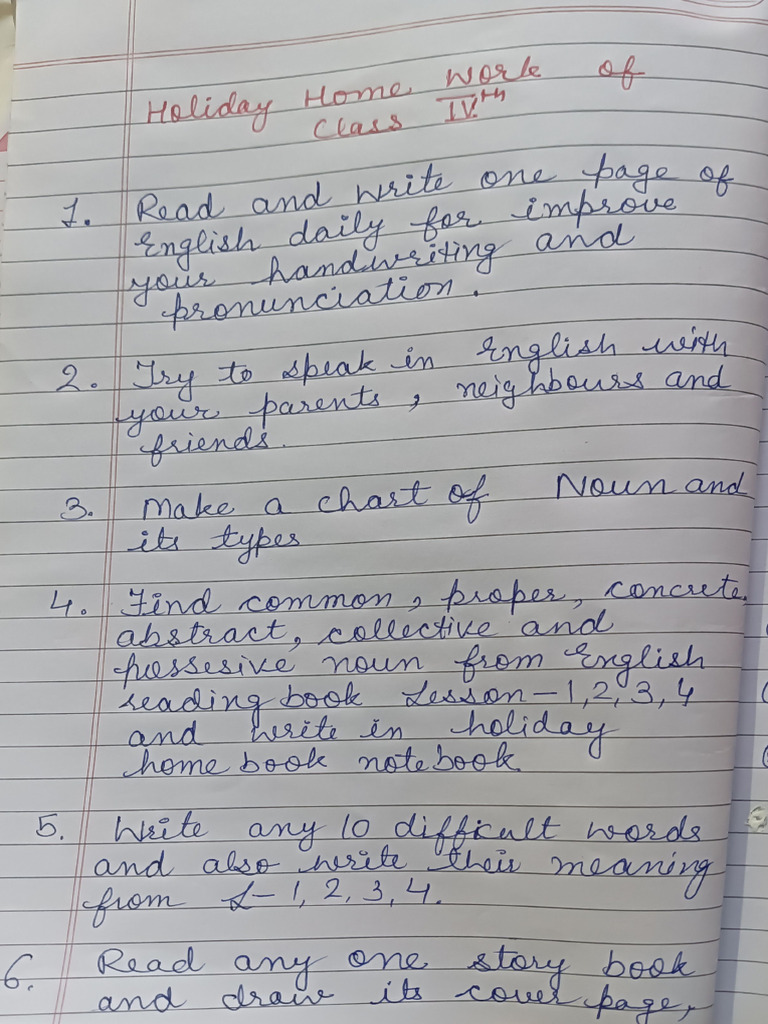 Holiday Home Work of
Class IVth
1. Read and write one page of
English daily for improve
your handwriting and
pronunciation.
2. Try to speak in English with
your parents, neighbours and
friends.
3. Make a chart of Noun and
its types
4. Find common, proper, concrete,
abstract, collective and
possesive noun from English
reading book Lesson - 1, 2, 3, 4
and write in holiday
home book notebook.
5. Write any 10 difficult words
and also write their meaning
from L- 1, 2, 3, 4.
6. Read any one story book
and draw its cover page,